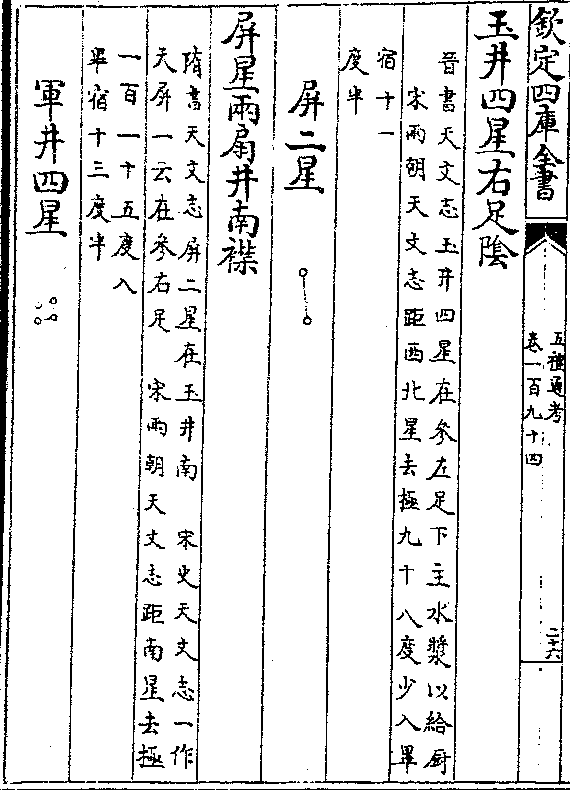 欽定四庫全書
五禮通考
卷一百九十四
二十六
玉井四星右足隂
晉書天文志玉井四星在參左足下主水漿以給厨
宋兩朝天文志距西北星去極九十八度少入畢
宿十一
度半
屏二星
屏星兩扇井南襟
隋書天文志屏二星在玉井南　宋史天文志一作
天屏一云在參右足　宋兩朝天文志距南星去極
一百一十五度入
畢宿十三度半
軍井四星